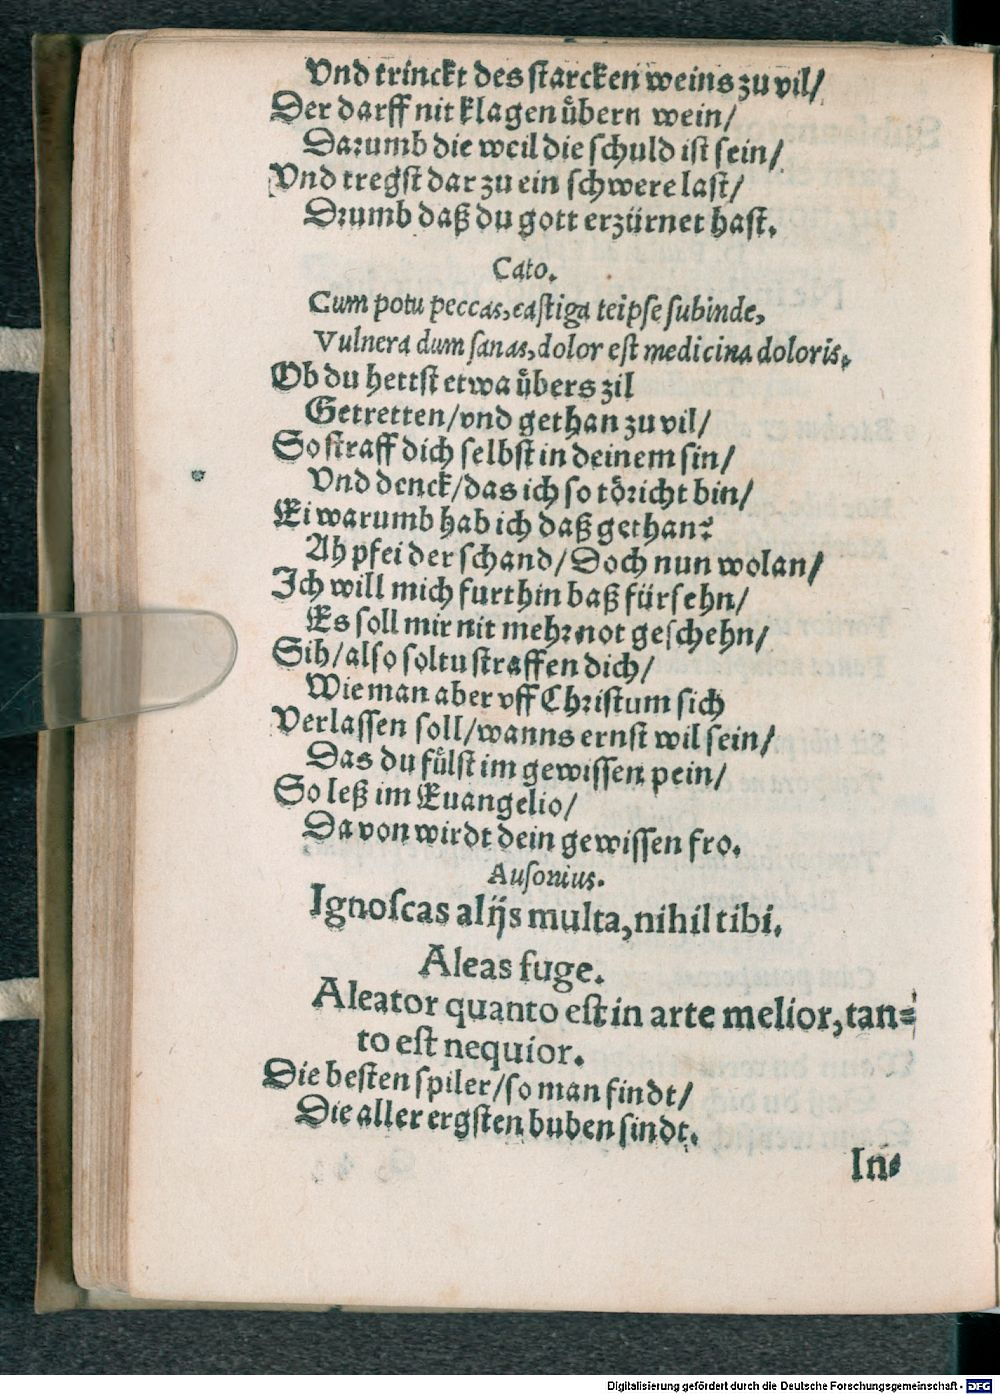 Vnd trinckt des starcken weins zu vil/
Der darff nit klagen uͤbern wein/
Darumb die weil die schuld ist sein/
Vnd tregst dar zu ein schwere last/
Drumb daß du gott erzürnet hast.
Cato.
Cum potu peccas, castiga teipse subinde,
Vulnera dum sanas, dolor est medicina doloris.
Ob du hettst etwa uͤbers zil
Getretten/vnd gethan zu vil/
So straff dich selbst in deinem sin/
Vnd denck/das ich so toͤricht bin/
Ei warumb hab ich daß gethan?
Ah pfei der schand/Doch nun wolan/
Ich will mich furthin baß fürsehn/
Es soll mir nit mehr not geschehn/
Sih/also soltu straffen dich/
Wie man aber vff Christum sich
Verlassen soll/wanns ernst wil sein/
Das du fuͤlst im gewissen pein/
So leß im Euangelio/
Da von wirdt dein gewissen fro.
Ausonius.
Ignoscas alijs multa, nihil tibi.
Aleas fuge.
Aleator quanto est in arte melior, tan=
to est nequior.
Die besten spiler/so man findt/
Die aller ergsten buben sindt.
In=
Digitalisierung gefördert durch die Deutsche Forschungsgemeinschaft - DFG